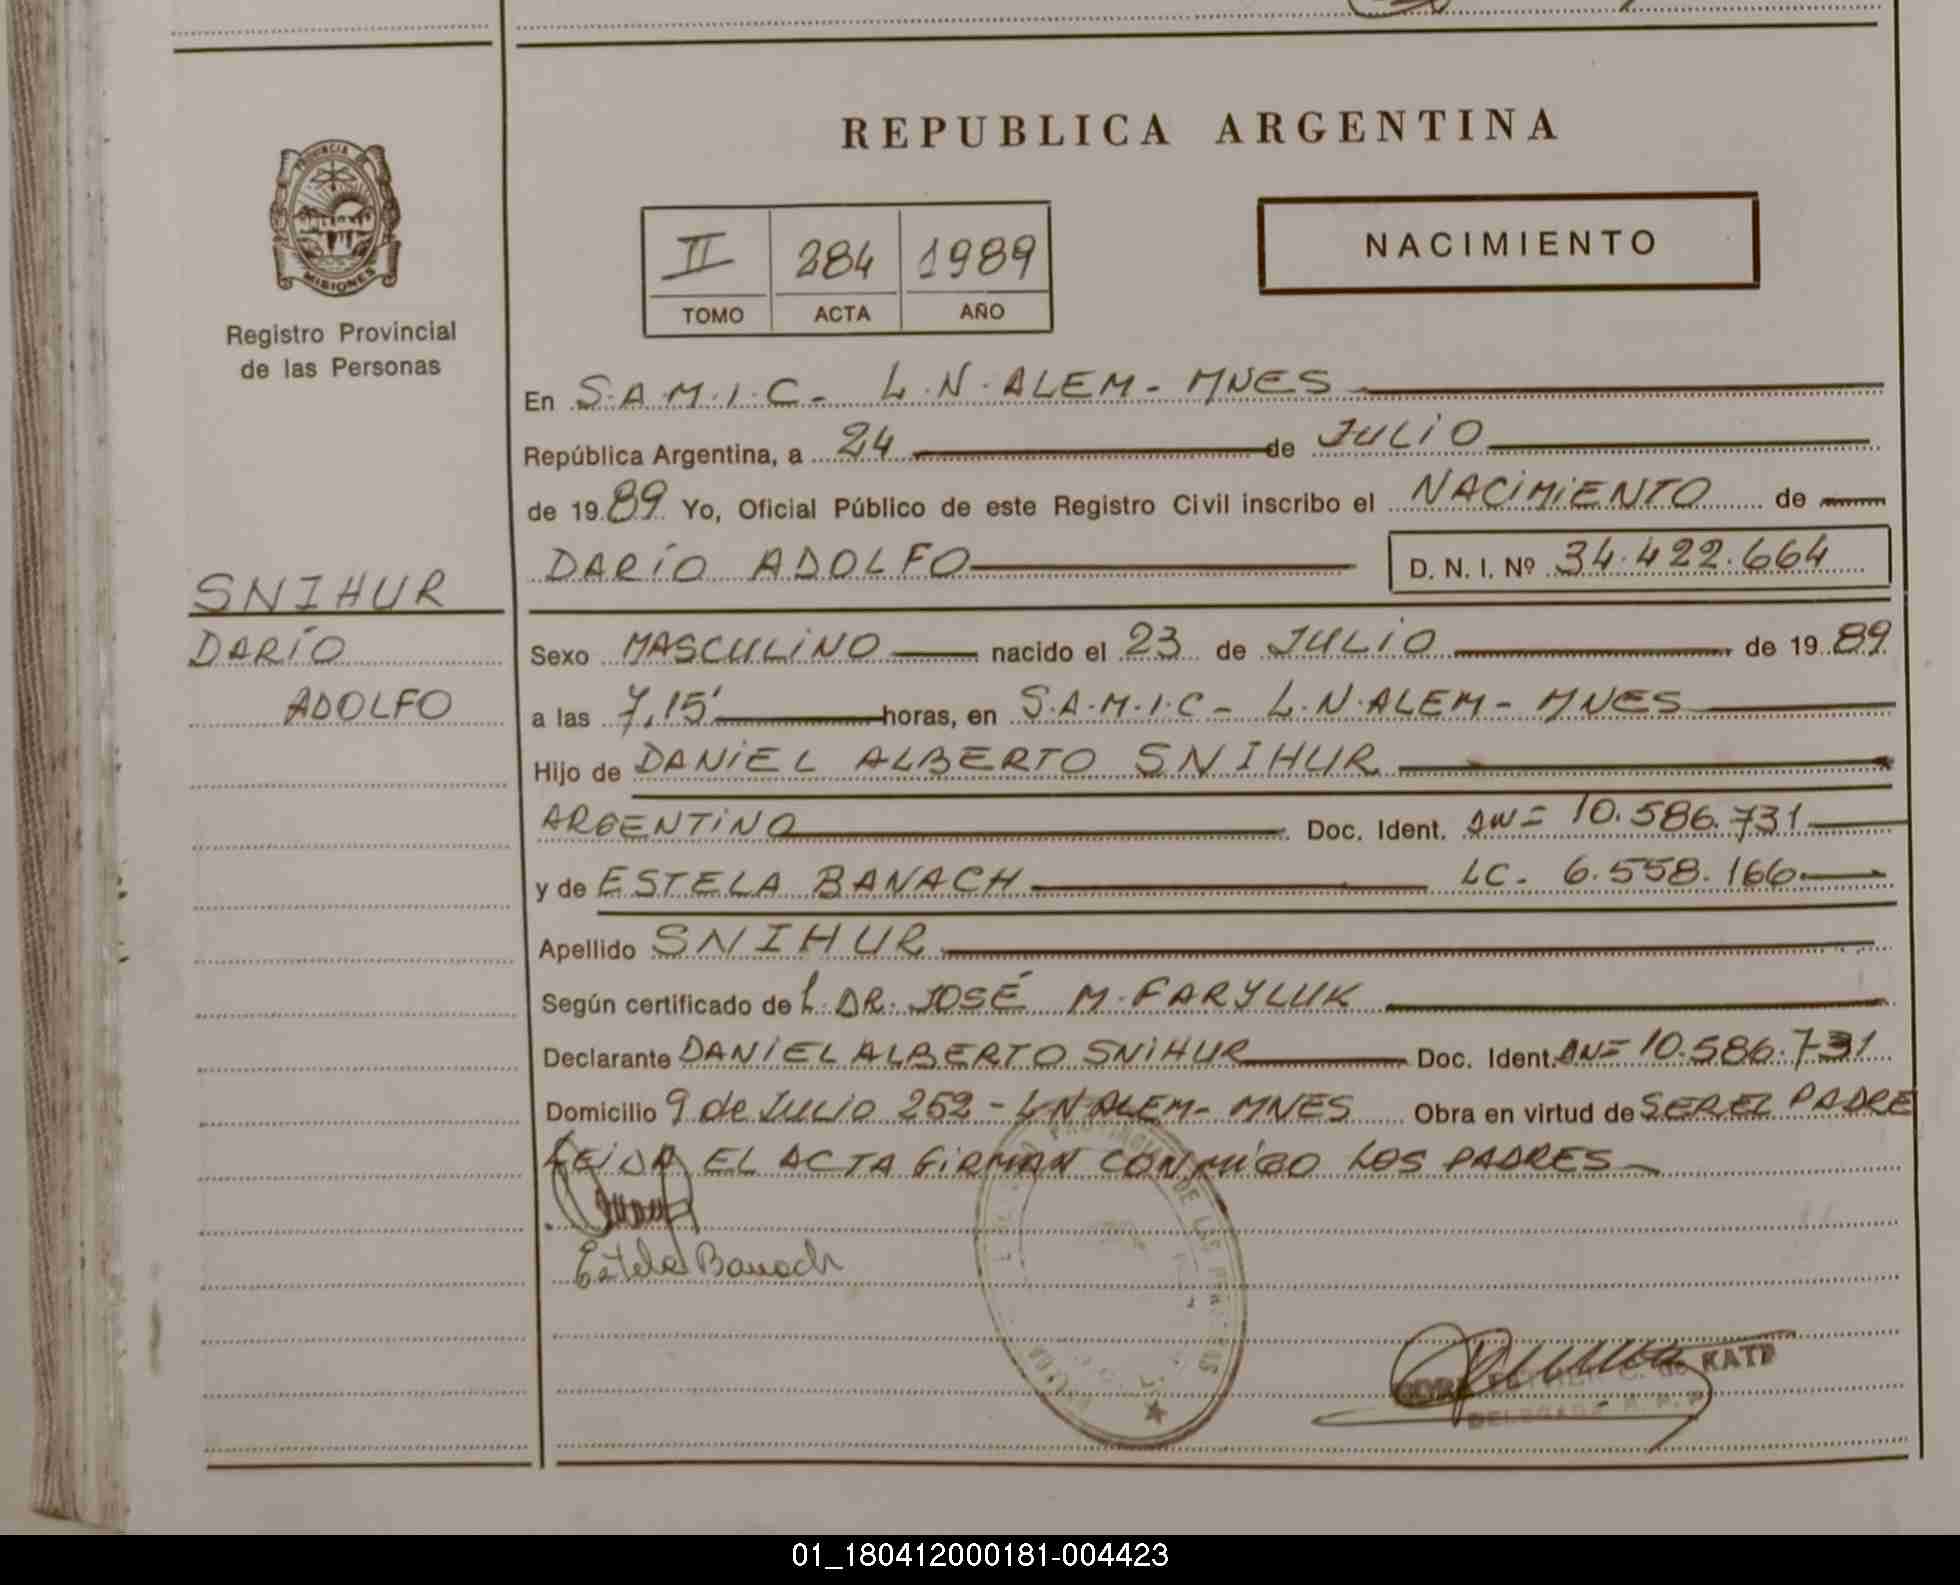 REPUBLICA ARGENTINA
PROVINCIA
MISIONES
Registro Provincial
de las Personas
II 284 1989
TOMO ACTA AÑO
NACIMIENTO
En S.A.M.I.C- L.N.ALEM- MNES
República Argentina, a 24 de JULIO
de 1989 Yo, Oficial Público de este Registro Civil inscribo el NACIMIENTO de
DARÍO ADOLFO D. N. I. Nº 34.422.664
SNIHUR
DARÍO
ADOLFO
Sexo MASCULINO nacido el 23 de JULIO de 1989
a las 7,15' horas, en S.A.M.I.C- L.N.ALEM- MNES
Hijo de DANIEL ALBERTO SNIHUR
ARGENTINO Doc. Ident. 10.586.731
y de ESTELA BANACH LC- 6.558.166
Apellido SNIHUR
Según certificado de L. DR. JOSÉ M. FARYLUK
Declarante DANIEL ALBERTO SNIHUR Doc. Ident. 10.586.731
Domicilio 9 de JULIO 252 - LN ALEM- MNES Obra en virtud de SER EL PADRE
LEIDA EL ACTA FIRMAN CONMIGO LOS PADRES
Estela Banach
PROVINCIAL DE LAS PERSONAS
C. de KATZ
DELEGADA R. P. P.
01_180412000181-004423